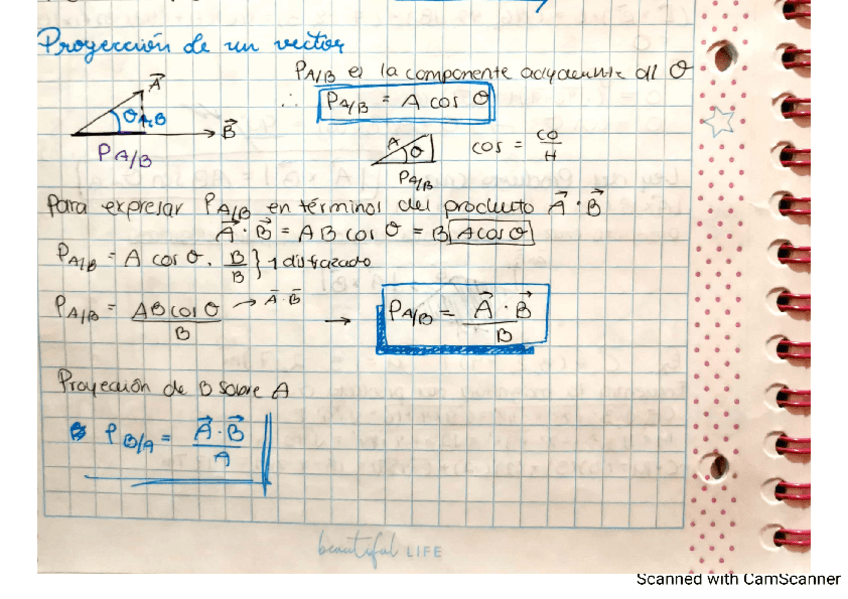 Proyección de un vector
P A/B es la componente adyacente al θ
∴ P A/B = A cos θ
A⃗
θ A,B
B⃗
P A/B
A θ
P A/B
cos = CO/H
Para expresar P A/B en términos del producto A⃗ · B⃗
A⃗ · B⃗ = A B cos θ = B A cos θ
P A/B = A cos θ · B/B } 1 disfrazado
P A/B = AB cos θ / B → A⃗ · B⃗
→ P A/B = A⃗ · B⃗ / B
Proyección de B sobre A
P B/A = A⃗ · B⃗ / A
beautiful LIFE
Scanned with CamScanner